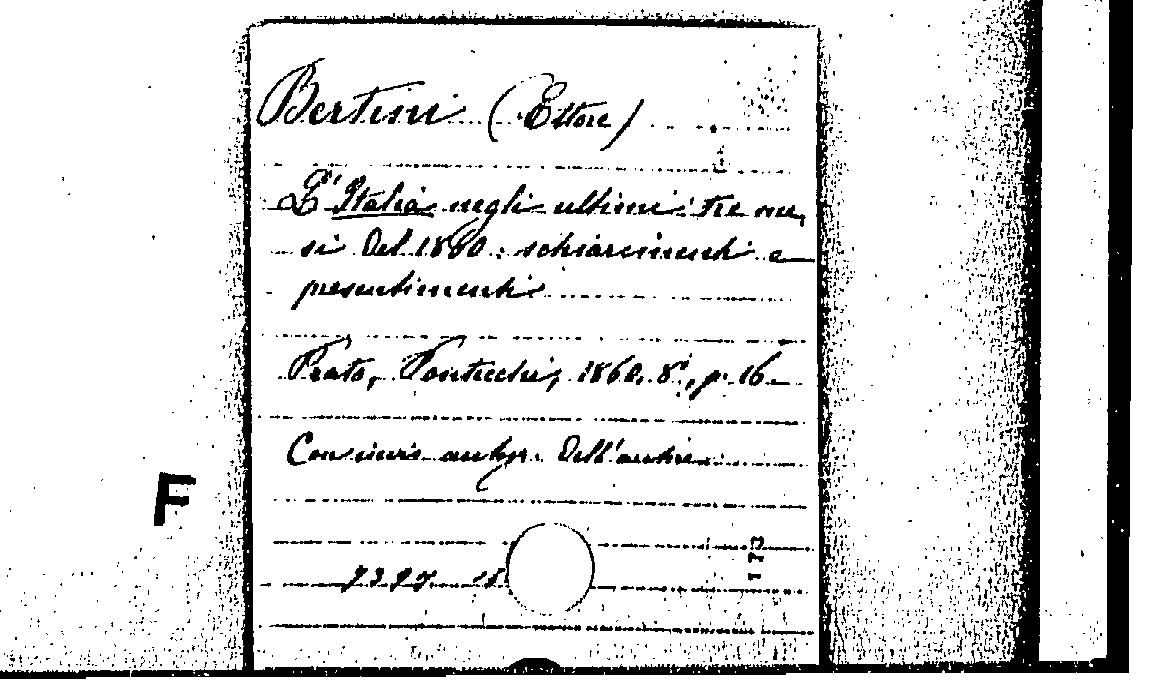 Bertini (Ettore)
L'Italia negli ultimi tre me,
si del 1860: schiarimenti e
presentimenti
Prato, Ponticchi, 1860. 8°, p. 16
Con invio autogr. dell'autore
F
173